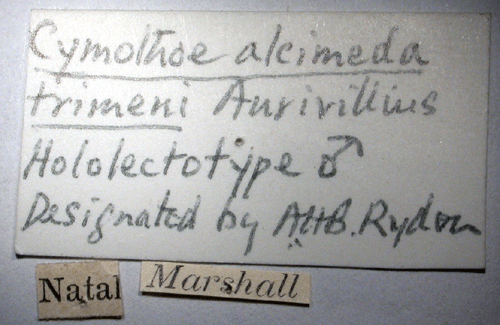 Cymothoe alcimeda
trimeni Aurivillius
Hololectotype ♂
Designated by AHB. Rydon
Natal
Marshall